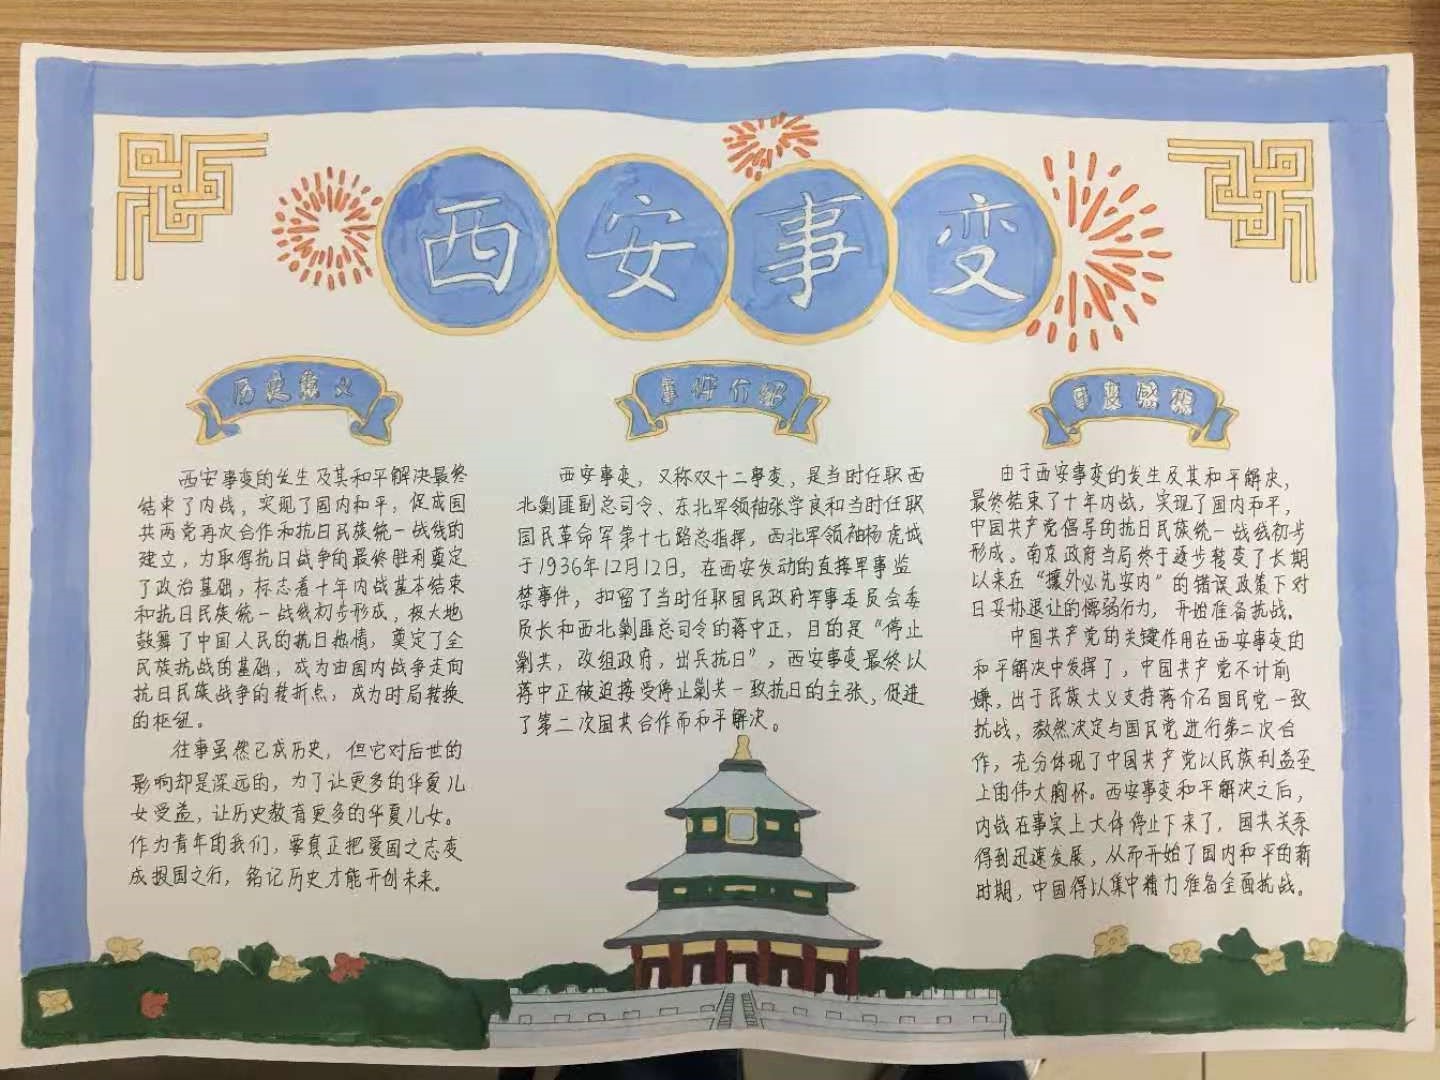 西安事变
历史意义
西安事变的发生及其和平解决最终
结束了内战，实现了国内和平，促成国
共两党再次合作和抗日民族统一战线的
建立，为取得抗日战争的最终胜利奠定
了政治基础，标志着十年内战基本结束
和抗日民族统一战线初步形成，极大地
鼓舞了中国人民的抗日热情，奠定了全
民族抗战的基础，成为由国内战争走向
抗日民族战争的转折点，成为时局转换
的枢纽。
往事虽然已成历史，但它对后世的
影响却是深远的，为了让更多的华夏儿
女受益，让历史教育更多的华夏儿女。
作为青年的我们，要真正把爱国之志变
成报国之行，铭记历史才能开创未来。
事件介绍
西安事变，又称双十二事变，是当时任职西
北剿匪副总司令、东北军领袖张学良和当时任职
国民革命军第十七路总指挥，西北军领袖杨虎城
于1936年12月12日，在西安发动的直接军事监
禁事件，扣留了当时任职国民政府军事委员会委
员长和西北剿匪总司令的蒋中正，目的是“停止
剿共，改组政府，出兵抗日”，西安事变最终以
蒋中正被迫接受停止剿共一致抗日的主张，促进
了第二次国共合作而和平解决。
事变感想
由于西安事变的发生及其和平解决，
最终结束了十年内战，实现了国内和平，
中国共产党倡导的抗日民族统一战线初步
形成。南京政府当局终于逐步转变了长期
以来在“攘外必先安内”的错误政策下对
日妥协退让的懦弱行为，开始准备抗战。
中国共产党的关键作用在西安事变的
和平解决中发挥了，中国共产党不计前
嫌，出于民族大义支持蒋介石国民党一致
抗战，毅然决定与国民党进行第二次合
作，充分体现了中国共产党以民族利益至
上的伟大胸怀。西安事变和平解决之后，
内战在事实上大体停止下来了，国共关系
得到迅速发展，从而开始了国内和平的新
时期，中国得以集中精力准备全面抗战。